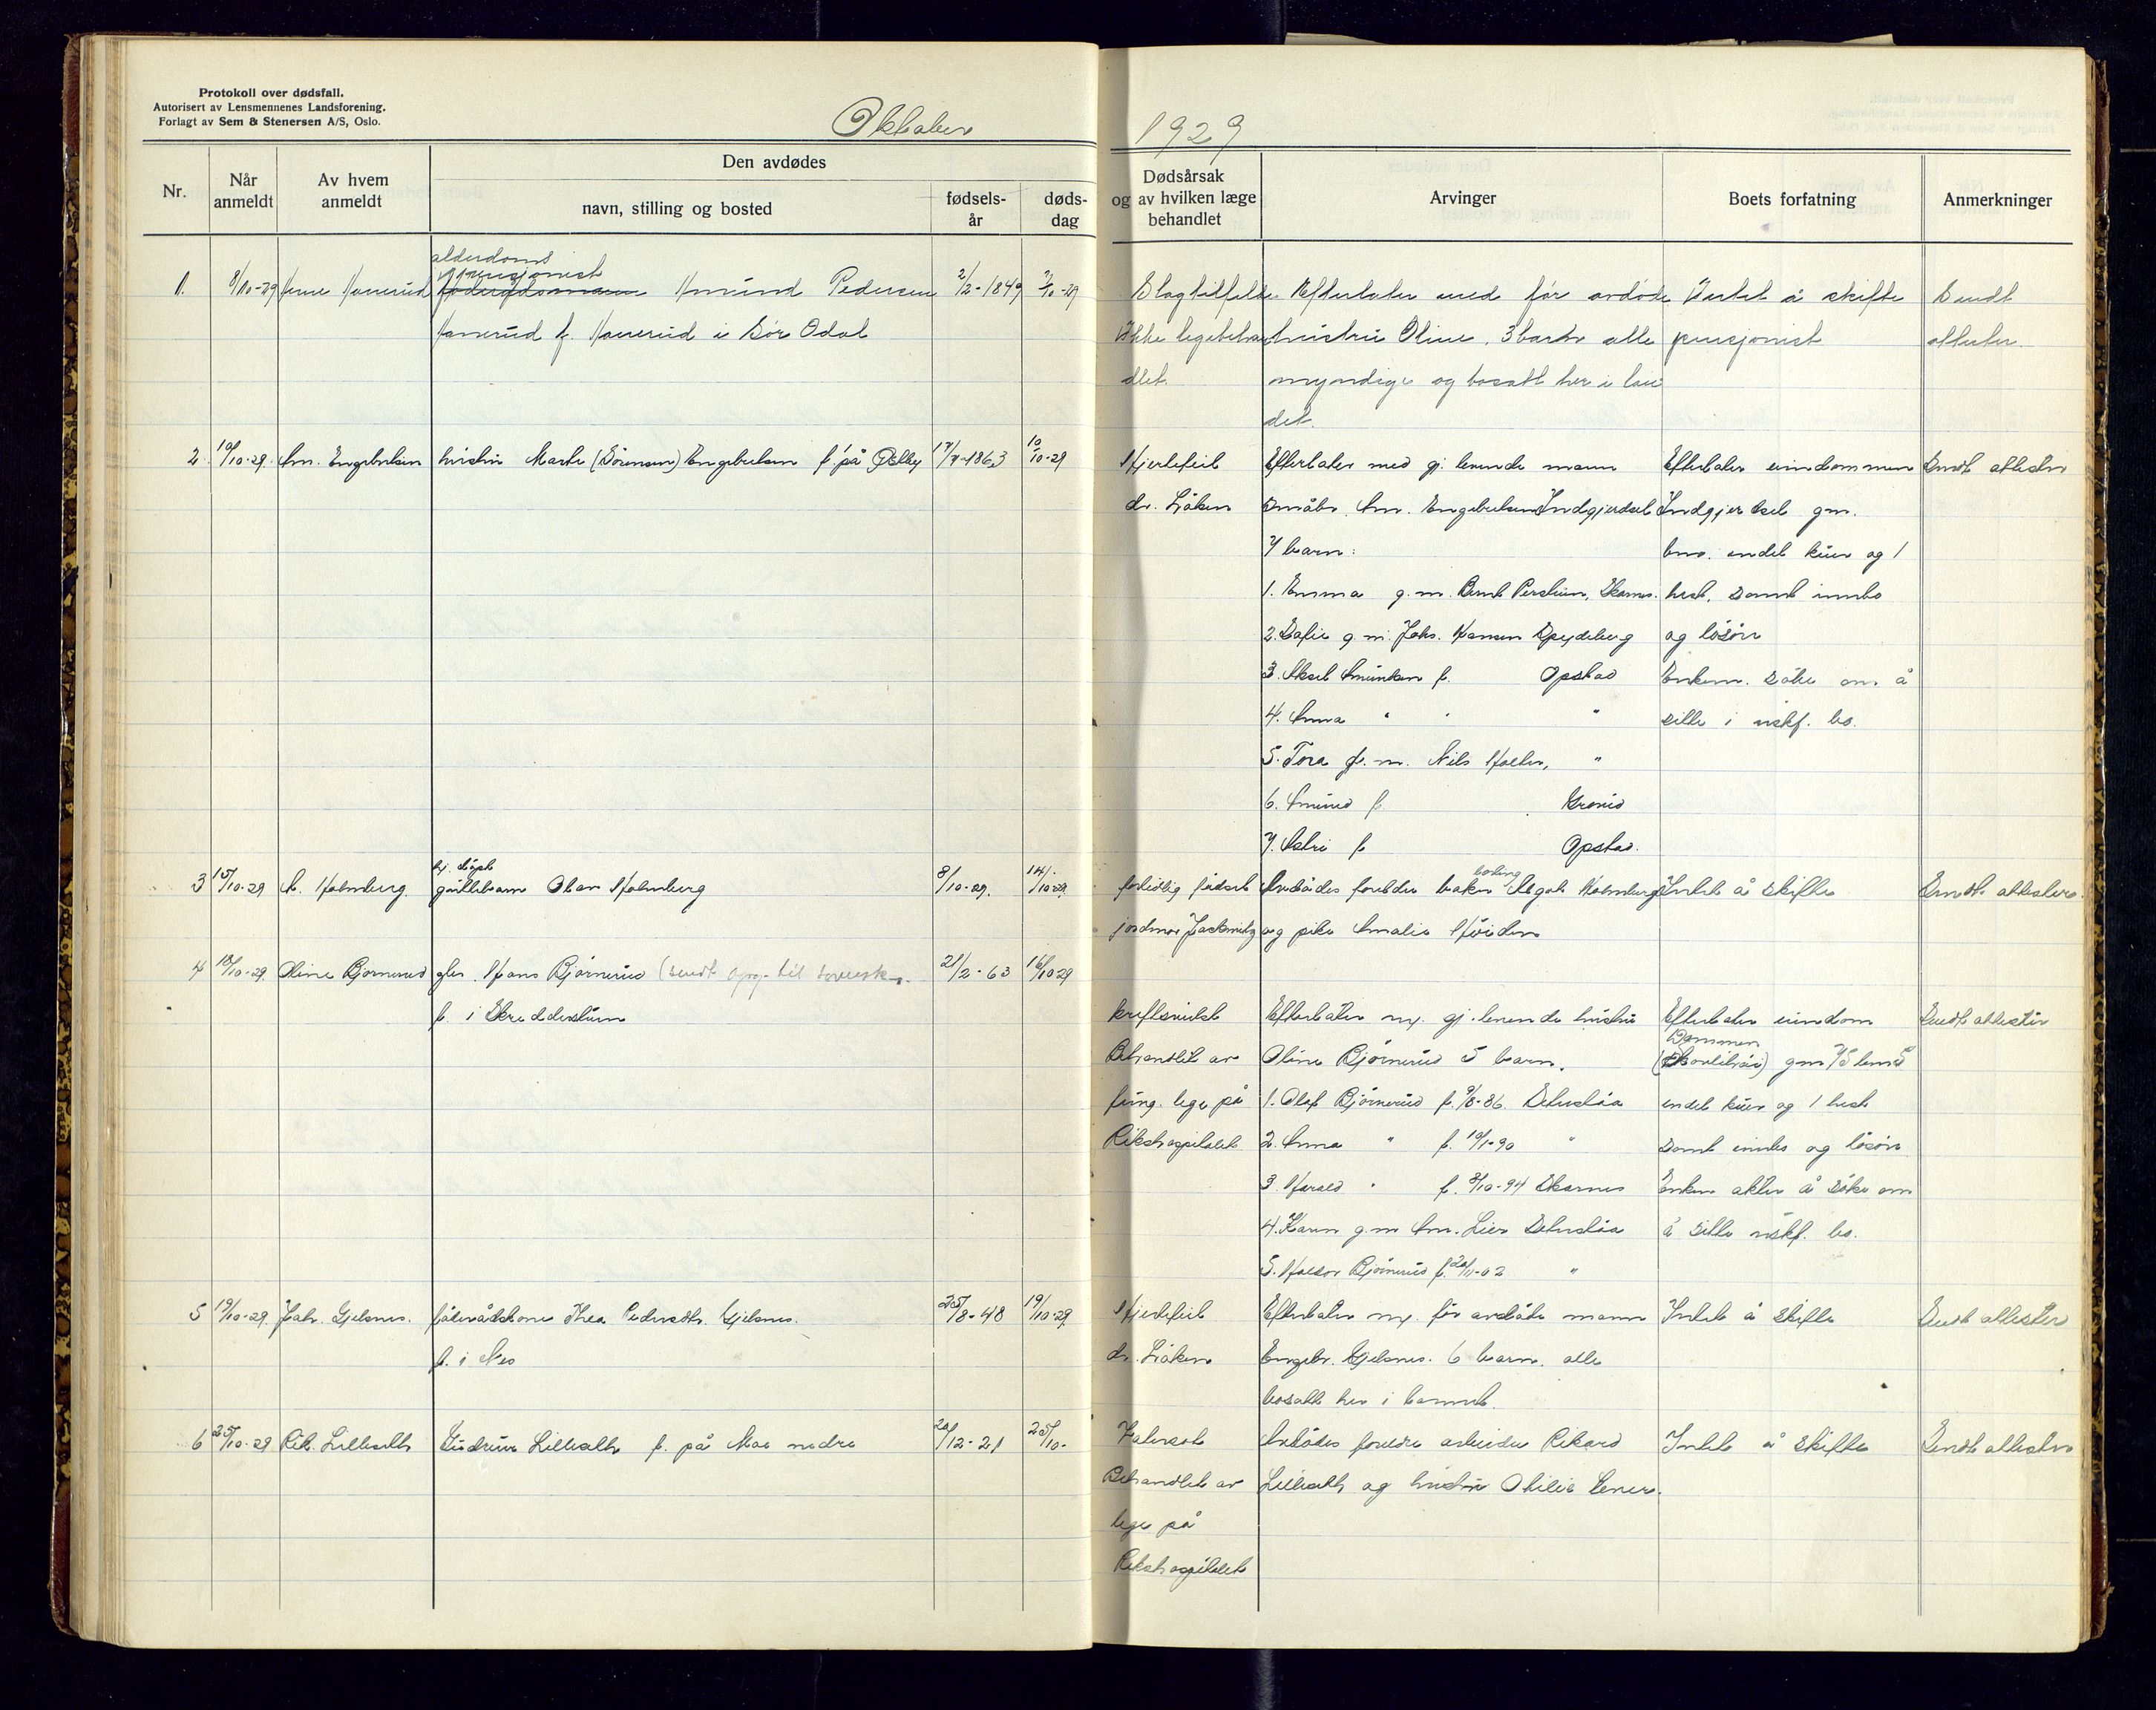 Protokoll over dødsfall.
Autorisert av Lensmennenes Landsforening.
Forlagt av Sem & Stenersen A/S, Oslo.
Oktober 1929
Nr.
Når anmeldt
Av hvem anmeldt
Den avdødes
navn, stilling og bosted
fødsels-år
døds-dag
Dødsårsak og av hvilken læge behandlet
Arvinger
Boets forfatning
Anmerkninger
1. 8/10-29
alderdoms
pensjonist
Amund Pedersen 2/2-1849 7/10-29
Hanerud f. Hanerud i Sør Odal
Slagtilfelde
Ikke legebehan
dlet
Efterlater med før avdøde
hustru Oline, 3 barn alle
myndige og bosatt her i lan
det.
Intet å skifte
pensjonist
Sendt
attester
2 10/10-29. Am. Engebretsen hustru Marte (Sørensen) Engebretsen f. på Østby 17/7-1863 10/10-29
Hjertefeil
dr. Liåken
Efterlater med gj. levende mann
Småbr. Am. Engebretsen Indgjerdset
7 barn:
1. Emma g.m. Bernt Perstuen, Skarnes.
2. Sofie g.m. Johs. Hansen Spydeberg
3. Aksel Amundsen f. Opstad
4. Anna " " "
5. Tora g.m. Nils Holter, "
6. Amund f.
7. Astri f. Opstad.
Efterlater eiendommen
Indgjerdset gm.
bno. endel kuer og 1
hest, samt innbo
og løsøre
Enkem. søker om å
sitte i uskf. bo.
Sendt attester
3 15/10-29 A. Holmberg
gutteban Olav Holmberg 8/10-29. 14/10-29.
fortidlig fødsel
jordmor
Avdødes foreldre baker Holmberg
og pike Amalie
Intet å skifte
Sendt attester.
4 18/10-29. Oline Bjørnerud gbr. Hans Bjørnerud (sendt opg. til 21/2-63 16/10-29
f. i Skreddestuen
kreftsvulst
Behandlet av
fung. lege på
Rikshospitalet
Efterlater m/ gj. levende hustru
Oline Bjørnerud 5 barn.
1. Olaf Bjørnerud f. 9/8-86.
2. Anna " f. 10/1-90 "
3. Harald " f. 3/10-94 Skarnes
4. Karen g.m Am. Lier
5. Halvor Bjørnerud f. 20/11-02 "
Efterlater eiendom
endel kuer og 1 hest
samt innbo og løsøre
Enken akter å søke om
å sitte uskf. bo.
Sendt attester
5 19/10-29. Joh. Gjelsnes. føderådskone Thea Pedersdtr. Gjelsnes. 25/8-48 19/10-29.
f. i Nes
Hjertefeil
dr. Liåken
Efterlater m/ før avdøde mann
Engebr. Gjelsnes. 6 barn, alle
bosatt her i
Intet å skifte
Sendt attester
6 25/10-29 Rik. Lilleseth Gudrun Lilleseth f. på Moe nedre 20/12-21 25/10-
Behandlet av
lege på
Rikshospitalet
Avdødes foreldre arbeider Rikard
Lilleseth og hustru Otilie
Intet å skifte
Sendt attester